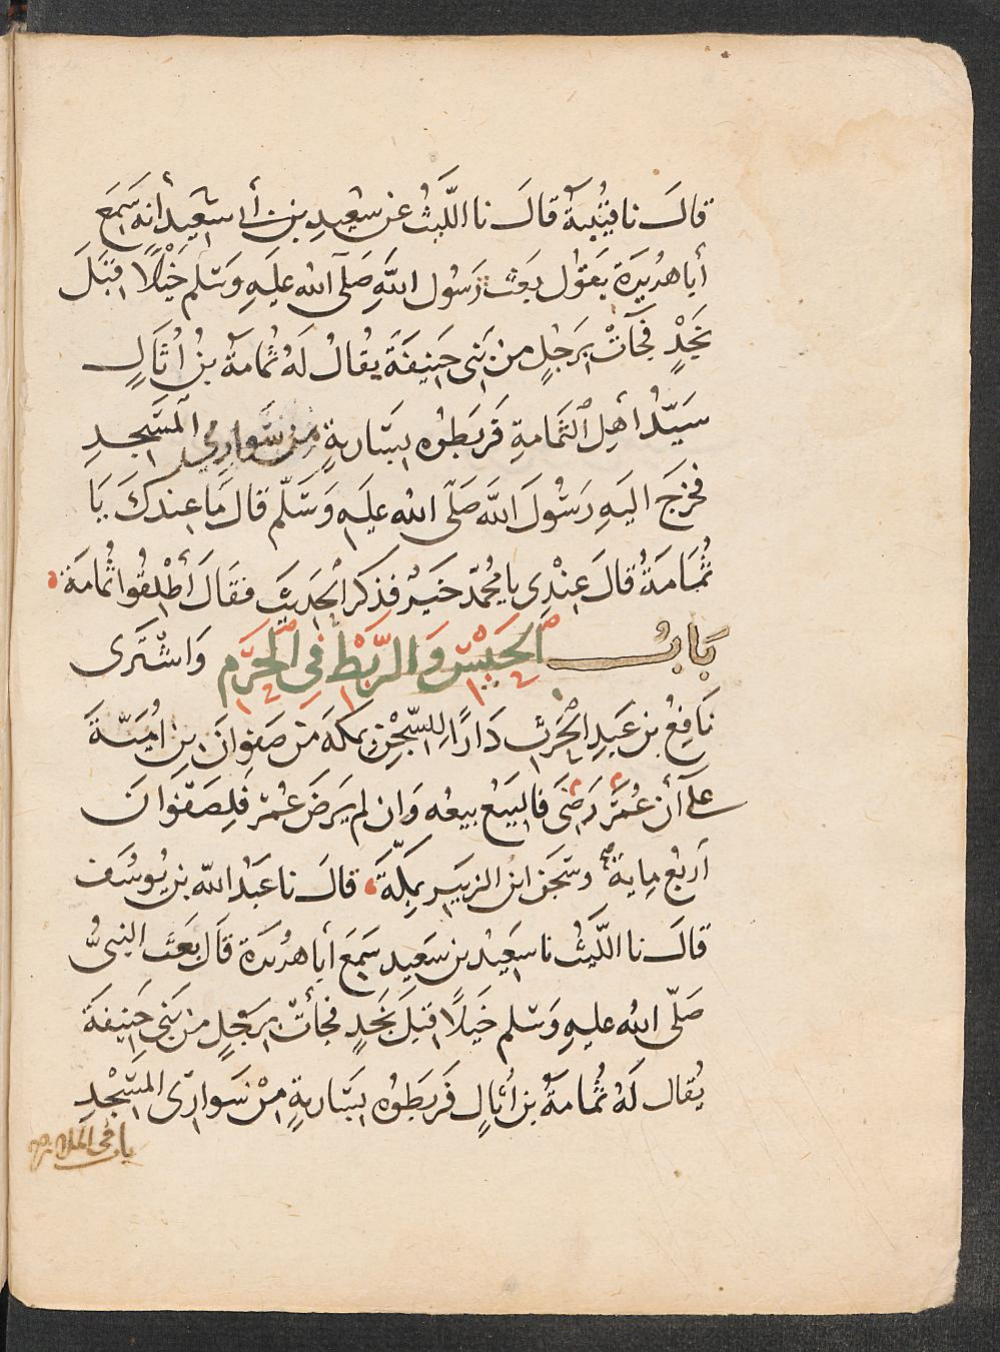 قالَ نا قتيبةُ قالَ نا اللَّيثُ عن سعيدِ بن أبي سعيد أنه سَمِعَ
أبا هريرة يقول بعث رسول اللهِ صَلّى الله عليهِ وَسَلم خَيْلًا قِبَلَ
نَجْدٍ فجآتْ برَجُلٍ من بَني حَنِيفَةَ يقُالُ لَهُ ثُمامةُ بنُ اُثَالٍ
سَيّدُ اَهلِ اليَمَامةِ فَرَبَطوُه بسَاريةٍ مِن سَوارِي المَسْجدِ
فخرَجَ اليَهِ رَسُولَ اللهِ صَلّى الله عليَهِ وَسَلّم قالَ مَا عِندكَ يَا
ثُمَامَةُ قالَ عِنْدِي يا محُمّد خَيْرٌ فذكر الحَدِيثَ فقَالَ أَطْلِقُوا ثُمامَةَ
بَابُ الحَبْسِ وَالرَّبْطِ فِي الحَرَمِ وَاشْتَرى
نَافِعُ بن عَبدِ الحَرِث دَارًا لِلسِّجْنِ بمكةَ مَن صَفوانَ بِن اُمَيّةَ
علَى أن عُمَرَ رَضَى فالبَيعُ بيعُه وَان لم يَرضَ عُمَر فَلِصَفْوانَ
اَربَعُ مِاية وسَجَن ابن الزبَيرِ بمكّةَ قالَ نا عَبدُ الله بن يُوسُف
قالَ نا اللَّيثُ نا سَعِيدُ بن سَعِيدٍ سَمِعَ أبا هريرَةَ قاَل بعَثَ النبيُّ
صَلّى الله عليهِ وَسَلم خَيْلًا قِبَلَ نَجْدٍ فجأتْ برَجُلٍ من بَني حَنيفَةَ
يُقال لَهُ ثُمامةُ بن اُثالٍ فَرَبَطوُه بسَاريةٍ مِنْ سَوارِى المَسْجِدِ